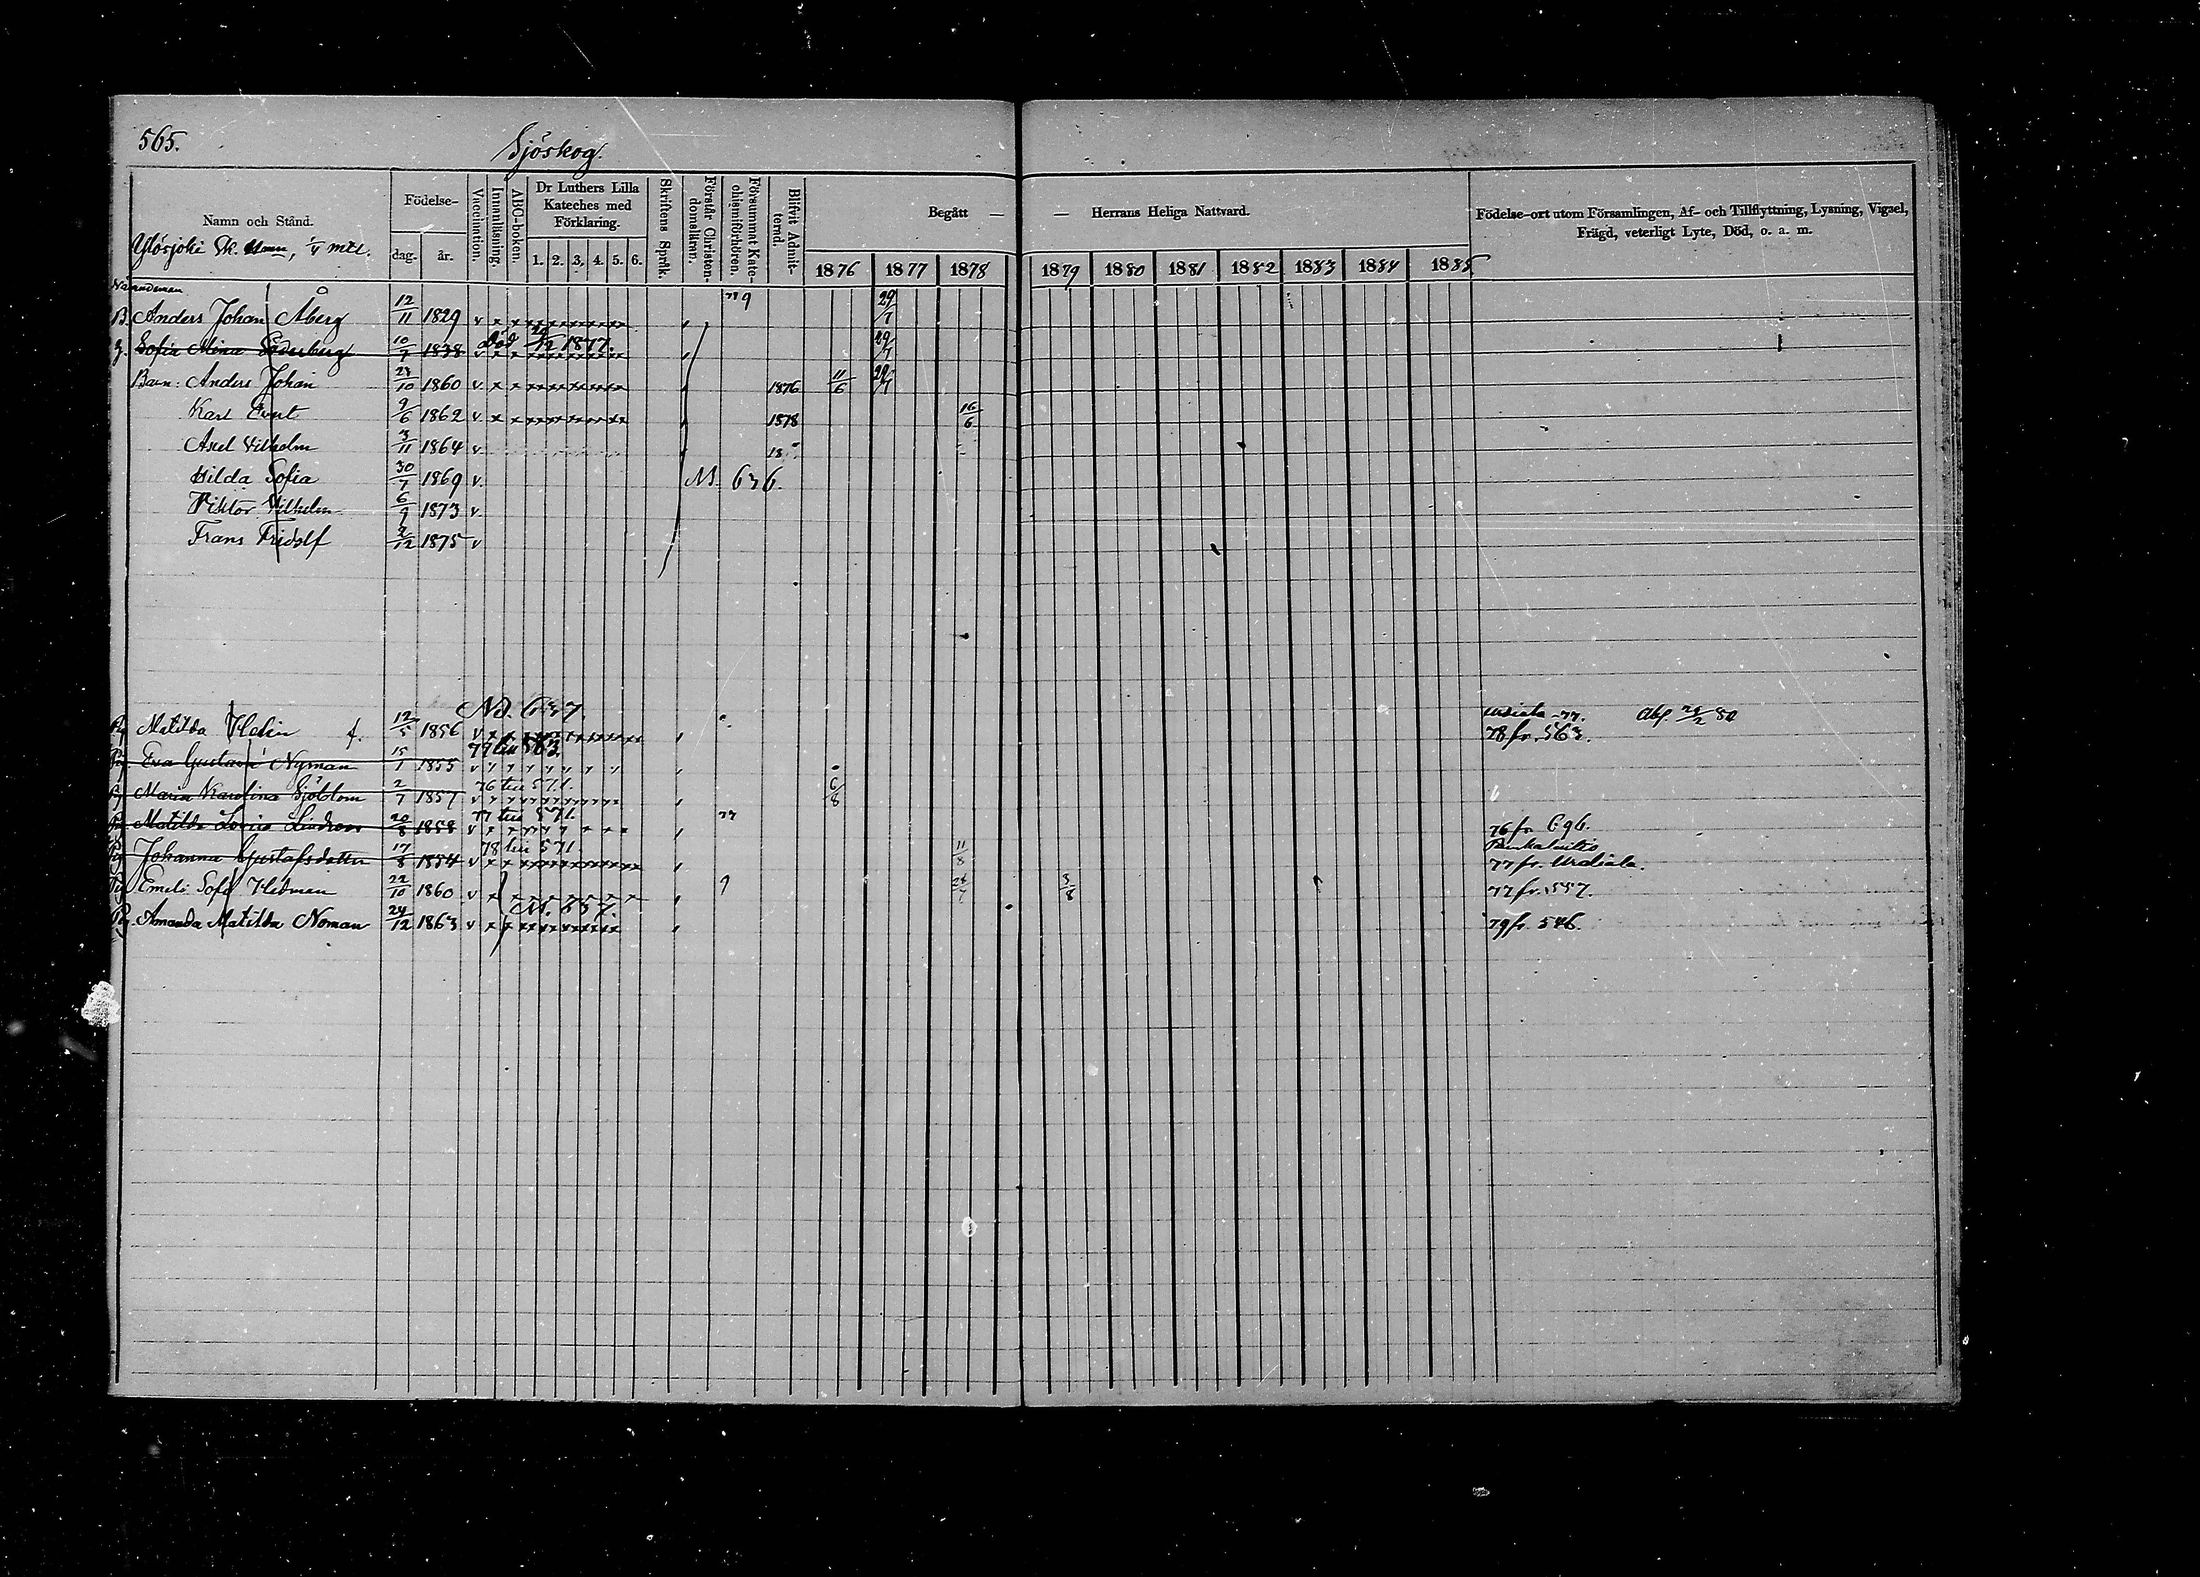 565.
Sjöskog.
Namn och Stånd.
Födelse-
dag. år.
Vaccination.
Innanläsning.
ABC-boken.
Dr Luthers Lilla
Kateches med
Förklaring.
1. 2. 3. 4. 5. 6.
Skriftens Språk.
Förstår Christen-
domsläran.
Försummat Kate-
chismiförhören.
Blifvit Admit-
terad.
Begått — — Herrans Heliga Nattvard.
1876 1877 1878 1879 1880 1881 1882 1883 1884 1885
Födelse-ort utom Församlingen, Af- och Tillflyttning, Lysning, Vigsel,
Frägd, veterligt Lyte, Död, o. a. m.
Ylösjoki
Nämndeman
B. Anders Johan Åberg 12/11 1829 v 29/7
Sofia Mina Söderberg 10/7 1838 Död 1877 29/7
Barn: Anders Johan 1860 v 1876 11/6 29/7
Karl Evert 9/6 1862 v 1878 16/6
Axel Vilhelm 3/11 1864 v 18
Hilda Sofia 30/7 1869 v. N. 636.
Viktor Vilhelm 6/9 1873 v.
Frans Fridolf 2/12 1875 v
N. 637.
Pg Matilda Helin f. 12/5 1856 v Urdiala -77. Abf. 80
78 fr. 563.
Pg Eva Gustava Nyman 15/1 1855 v 77 till 563
Pg Maria Karolina Sjöblom 2/7 1857 v 76 till 571. 6/8
Pg Matilda Lovisa 20/8 1858 v 77 till 571. 77 76 fr 696.
Pg Johanna Gustafsdotter 17/8 1854 v 78 till 571 11/8
77 fr. Urdiala.
Pg Emeli Sofia Hedman 22/10 1860 v 3/8 77 fr. 557.
Pg Amanda Matilda Noman 24/12 1863 v N. 637. 79 fr. 546.